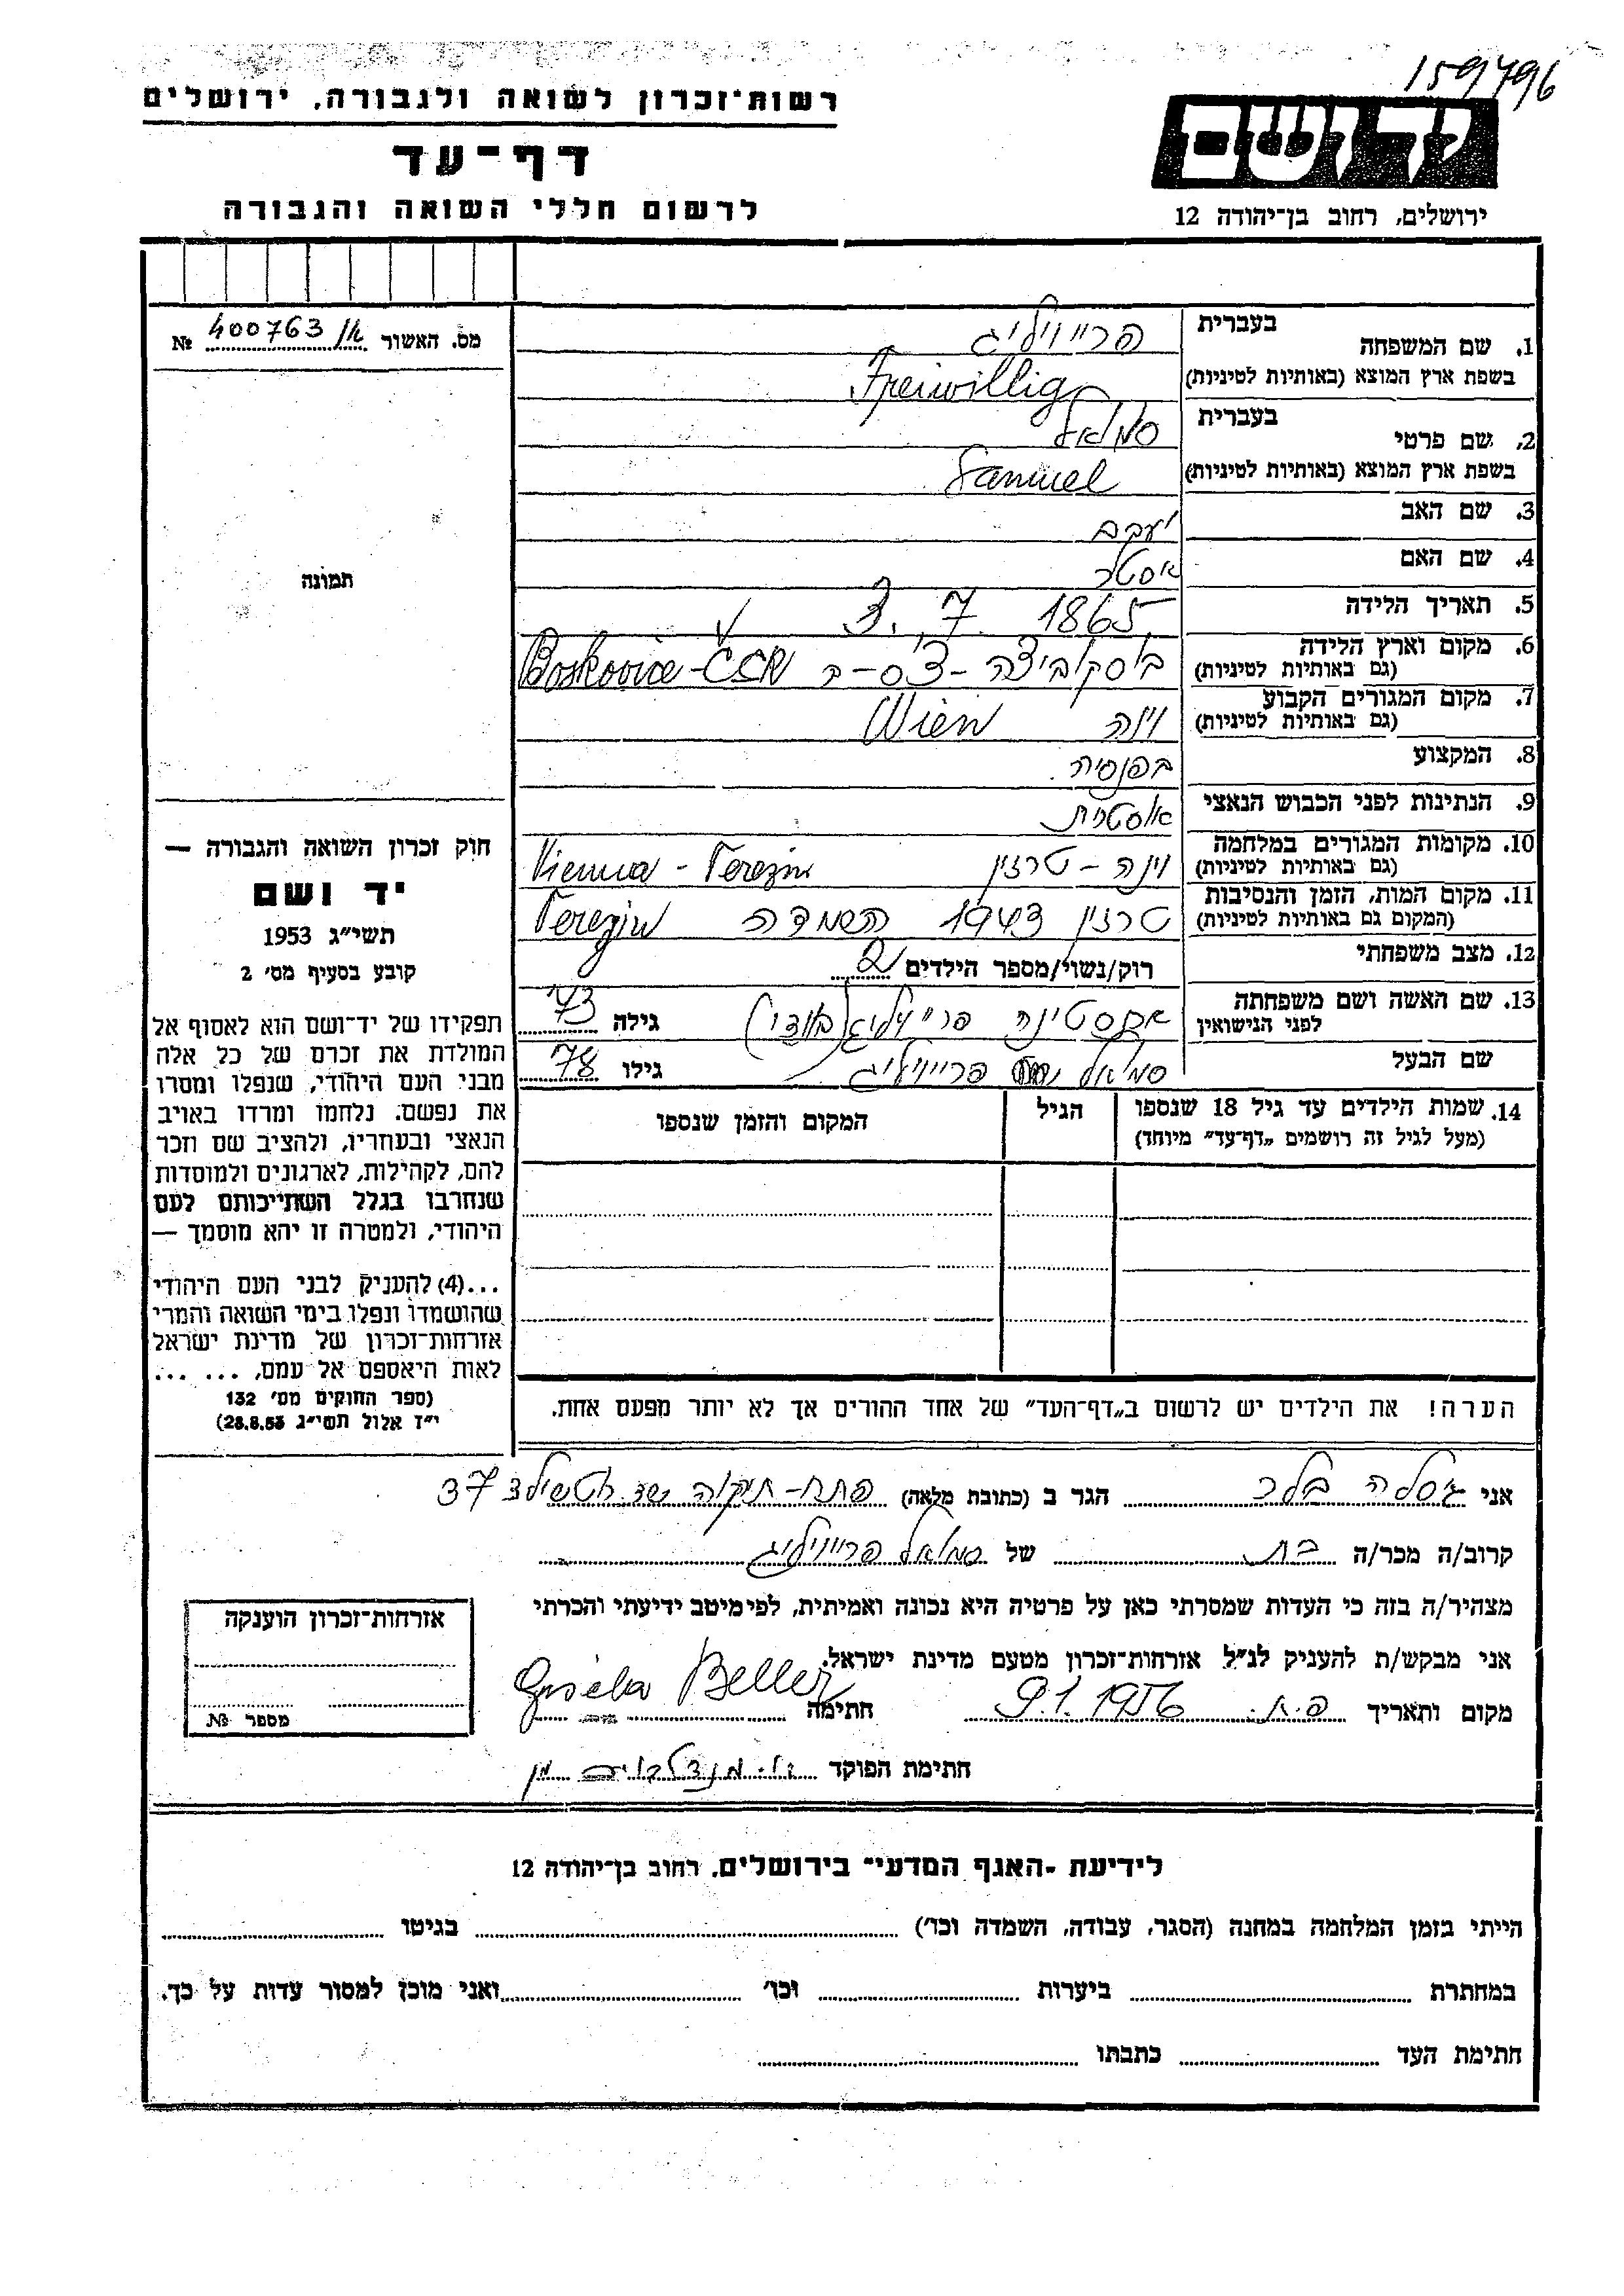 159796
רשות־זכרון לשואה ולגבורה, ירושלים
דף־עד
לרשום חללי השואה והגבורה
ידושם
ירושלים, רחוב בן־יהודה 12
מס. האשור 400763 /א №
תמונה
בעברית
1. שם המשפחה
פרייוויליג
בשפת ארץ המוצא (באותיות לטיניות)
Freiwillig
בעברית
2. שם פרטי
סמואל
בשפת ארץ המוצא (באותיות לטיניות)
Samuel
3. שם האב יעקב
4. שם האם אסטר
5. תאריך הלידה 3. 7. 1865
6. מקום וארץ הלידה
(גם באותיות לטיניות)
בוסקוביצה - צ'ס-ר Boskovice - ČSR
7. מקום המגורים הקבוע
(גם באותיות לטיניות)
וינה Wien
8. המקצוע בפנסיה
9. הנתינות לפני הכבוש הנאצי אוסטרית
10. מקומות המגורים במלחמה
(גם באותיות לטיניות)
וינה - טרזין Vienna - Terezin
11. מקום המות, הזמן והנסיבות
(המקום גם באותיות לטיניות)
טרזין 1943 השמדה Terezin
12. מצב משפחתי
רוק/נשוי/מספר הילדים 2
13. שם האשה ושם משפחתה
לפני הנישואין
פרייוויליג גילה 73
שם הבעל סמואל פרייוויליג גילו 78
14. שמות הילדים עד גיל 18 שנספו
(מעל לגיל זה רושמים „דף־עד" מיוחד)
הגיל
המקום והזמן שנספו
הערה! את הילדים יש לרשום ב„דף־העד" של אחד ההורים אך לא יותר מפעם אחת.
חוק זכרון השואה והגבורה —
יד ושם
תשי"ג 1953
קובע בסעיף מס' 2
תפקידו של יד־ושם הוא לאסוף אל
המולדת את זכרם של כל אלה
מבני העם היהודי, שנפלו ומסרו
את נפשם, נלחמו ומרדו באויב
הנאצי ובעוזריו, ולהציב שם וזכר
להם, לקהילות, לארגונים ולמוסדות
שנחרבו בגלל השתייכותם לעם
היהודי, ולמטרה זו יהא מוסמך —
...(4) להעניק לבני העם היהודי
שהושמדו ונפלו בימי השואה והמרי
אזרחות־זכרון של מדינת ישראל
לאות היאספם אל עמם, ... ...
(ספר החוקים מס' 132
י"ז אלול תשי"ג 28.8.53)
אני גיזלה בלר הגר ב (כתובת מלאה) פתח-תיקוה שד. רוטשילד 37
קרוב/ה מכר/ה בת של סמואל פרייוויליג
מצהיר/ה בזה כי העדות שמסרתי כאן על פרטיה היא נכונה ואמיתית, לפי מיטב ידיעתי והכרתי
אני מבקש/ת להעניק לנ"ל אזרחות־זכרון מטעם מדינת ישראל.
מקום ותאריך פ.ת. 9.1.1956 חתימה Gisela Beller
חתימת הפוקד
אזרחות־זכרון הוענקה
מספר №
לידיעת ־האגף המדעי־ בירושלים, רחוב בן־יהודה 12
הייתי בזמן המלחמה במחנה (הסגר, עבודה, השמדה וכו') בגיטו
במחתרת ביערות וכו' ואני מוכן למסור עדות על כך.
חתימת העד כתבתו